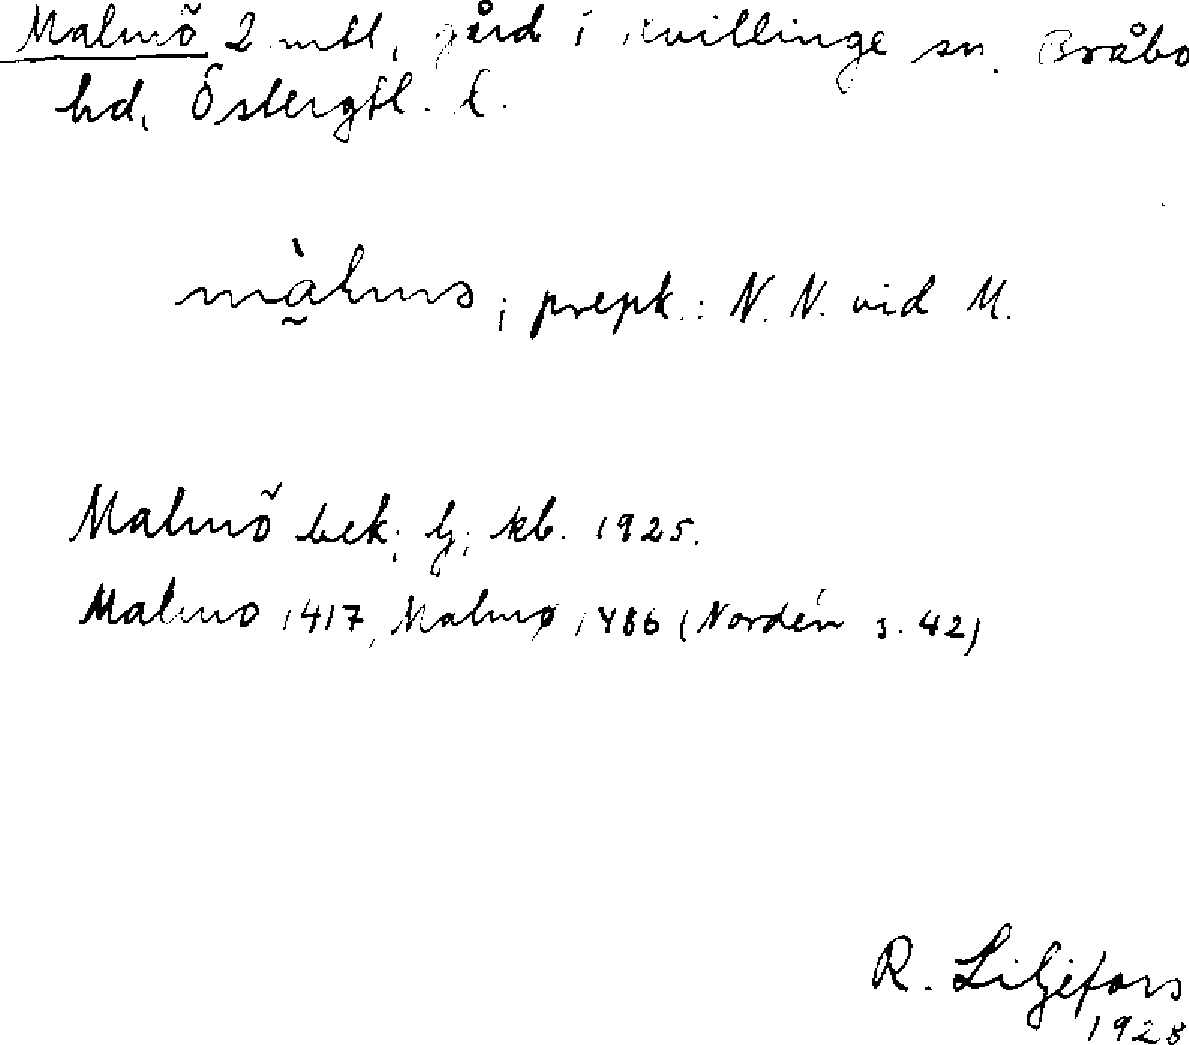 Malmö 2 mtl, gård i Kvillinge sn. Bråbo
hd, Östergtl. l.
; prepk.: N. N. vid M.
Malmö bek; lj; kb. 1925.
Malmo 1417, Malmø 1486 (Nordén s. 42)
R. Liljefors
1928